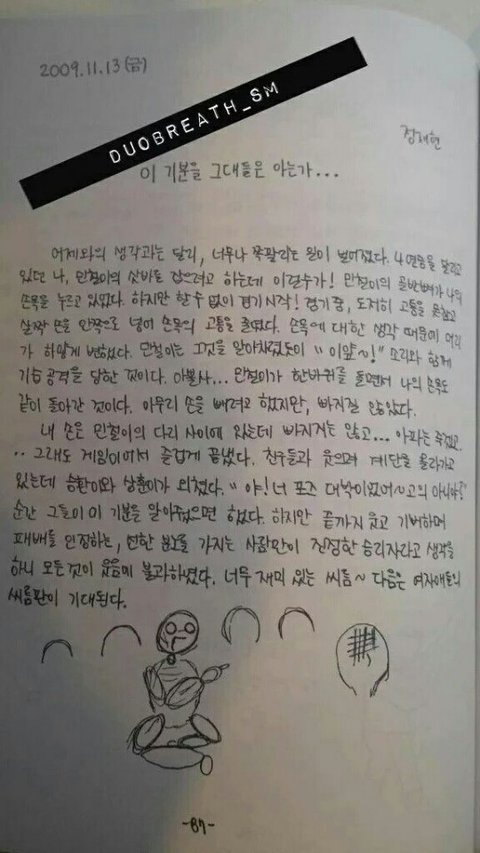 2009.11.13(금)
DUOBREATH_SM
장재현
이 기분을 그대들은 아는가...
어제와의 생각과는 달리, 너무나 쪽팔리는 일이 벌어졌다. 4연승을 달리고
있던 나, 민철이의 샅바를 잡으려고 하는데 이럴수가! 민철이의 골반뼈가 나의
손목을 누르고 있었다. 하지만 할 수 없이 경기시작! 경기 중, 도저히 고통을 못참고
살짝 손을 안쪽으로 넣어 손목의 고통을 줄였다. 손목에 대한 생각 때문에 머리
가 하얗게 변했다. 민철이는 그것을 알아차렸듯이 "이얖~!" 소리와 함께
기습공격을 당한 것이다. 아뿔사... 민철이가 한바퀴를 돌면서 나의 손목도
같이 돌아간 것이다. 아무리 손을 빼려고 했지만, 빠지질 않았다.
내 손은 민철이의 다리 사이에 있는데 빠지지는 않고... 아파는 죽겠고..
.. 그래도 게임이어서 즐겁게 끝냈다. 친구들과 웃으며 계단을 올라가고
있는데 승환이와 상훈이가 외쳤다. "야! 너 포즈 대박이었어~고의 아니야?"
순간 그들이 이 기분을 알아줬으면 했다. 하지만 끝까지 웃고 기뻐하며
패배를 인정하는, 그런 사람만이 진정한 승리자라고 생각을
하니 모든것이 웃음에 불과하였다. 너무 재미 있는 씨름~ 다음은 여자애들의
씨름판이 기대된다.
-87-